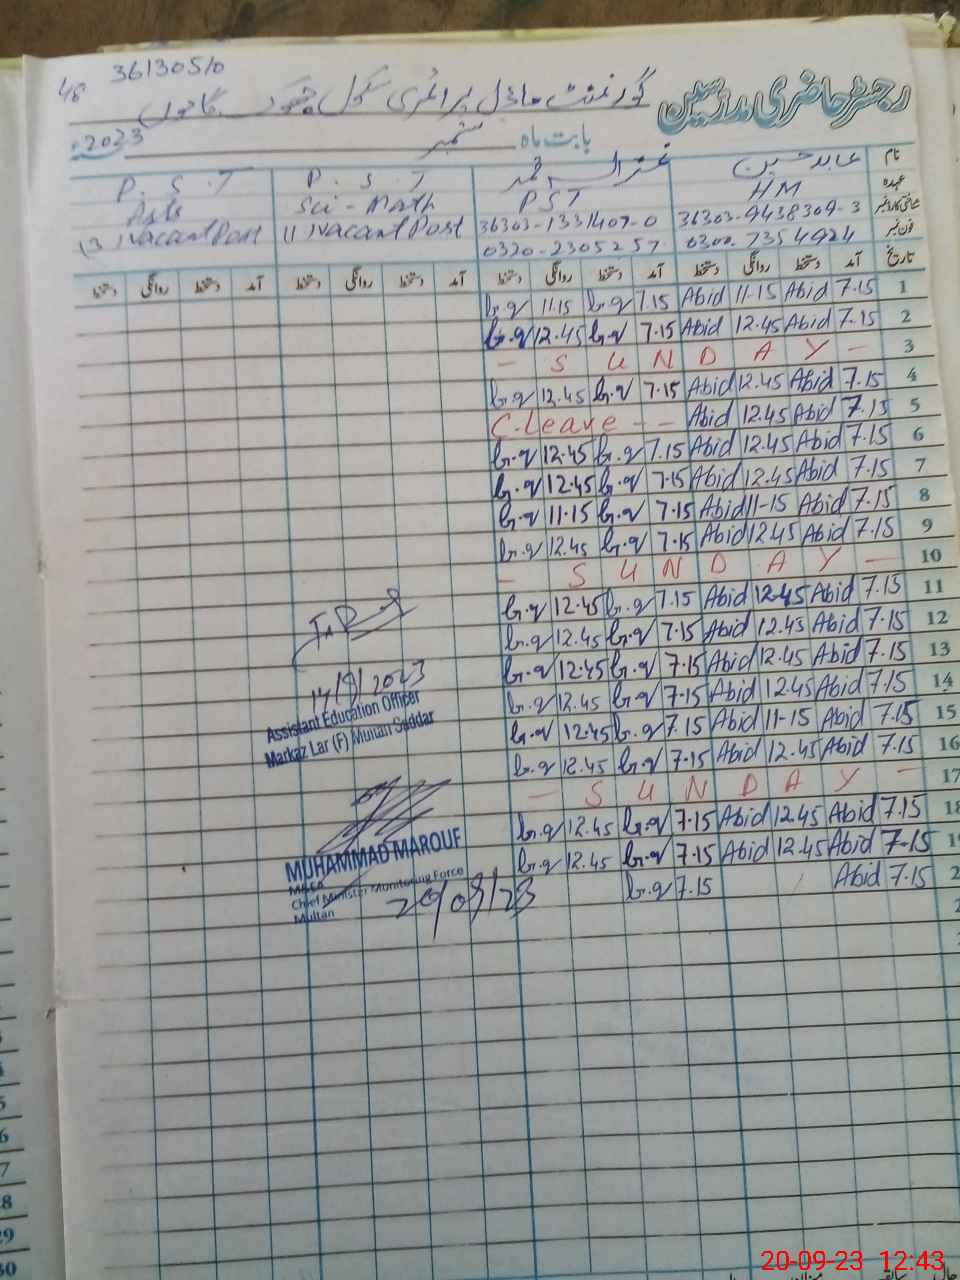 48 36130510
رجسٹر حاضری مدرسین گورنمنٹ ماڈل پرائمری سکول
بابت ماہ ستمبر 2023ء
نام عابد حسین
عہدہ HM PST P.S.T P.S.T
Sci-Math Arts
36303-9438309-3 36303-1331407-0 11) Vacant Post Vacant Post
فون نمبر 0302-7354924 0320-2305257
تاریخ آمد دستخط روانگی دستخط آمد دستخط روانگی دستخط آمد دستخط روانگی دستخط آمد دستخط روانگی دستخط
1 7.15 Abid 11-15 Abid 7.15 11.15
2 7.15 Abid 12.45 Abid 7.15 12.45
3 - S U N D A Y -
4 7.15 Abid 12.45 Abid 7.15 12.45
5 7.15 Abid 12.45 Abid C.Leave - -
6 7.15 Abid 12.45 Abid 7.15 12.45
7 7.15 Abid 12.45 Abid 7.15 12.45
8 7.15 Abid 11-15 Abid 7.15 11-15
9 7.15 Abid 12.45 Abid 7.15 12.45
10 - S U N D A Y -
11 7.15 Abid 12.45 Abid 7.15 12.45
12 7.15 Abid 12.45 Abid 7.15 12.45
13 7.15 Abid 12.45 Abid 7.15 12.45
14 7.15 Abid 12.45 Abid 7.15 12.45
15 7.15 Abid 11-15 Abid 7.15 12.45
16 7.15 Abid 12.45 Abid 7.15 12.45
17 - S U N D A Y -
18 7.15 Abid 12.45 Abid 7.15 12.45
7-15 Abid 12.45 Abid 7.15 12.45
7.15 Abid 7.15
14/9/2023
Assistant Education Officer
Markaz Lar (F) Multan Saddar
MUHAMMAD MAROUF
Chief Minister Monitoring Force
Multan
20/09/23
20-09-23 12:43